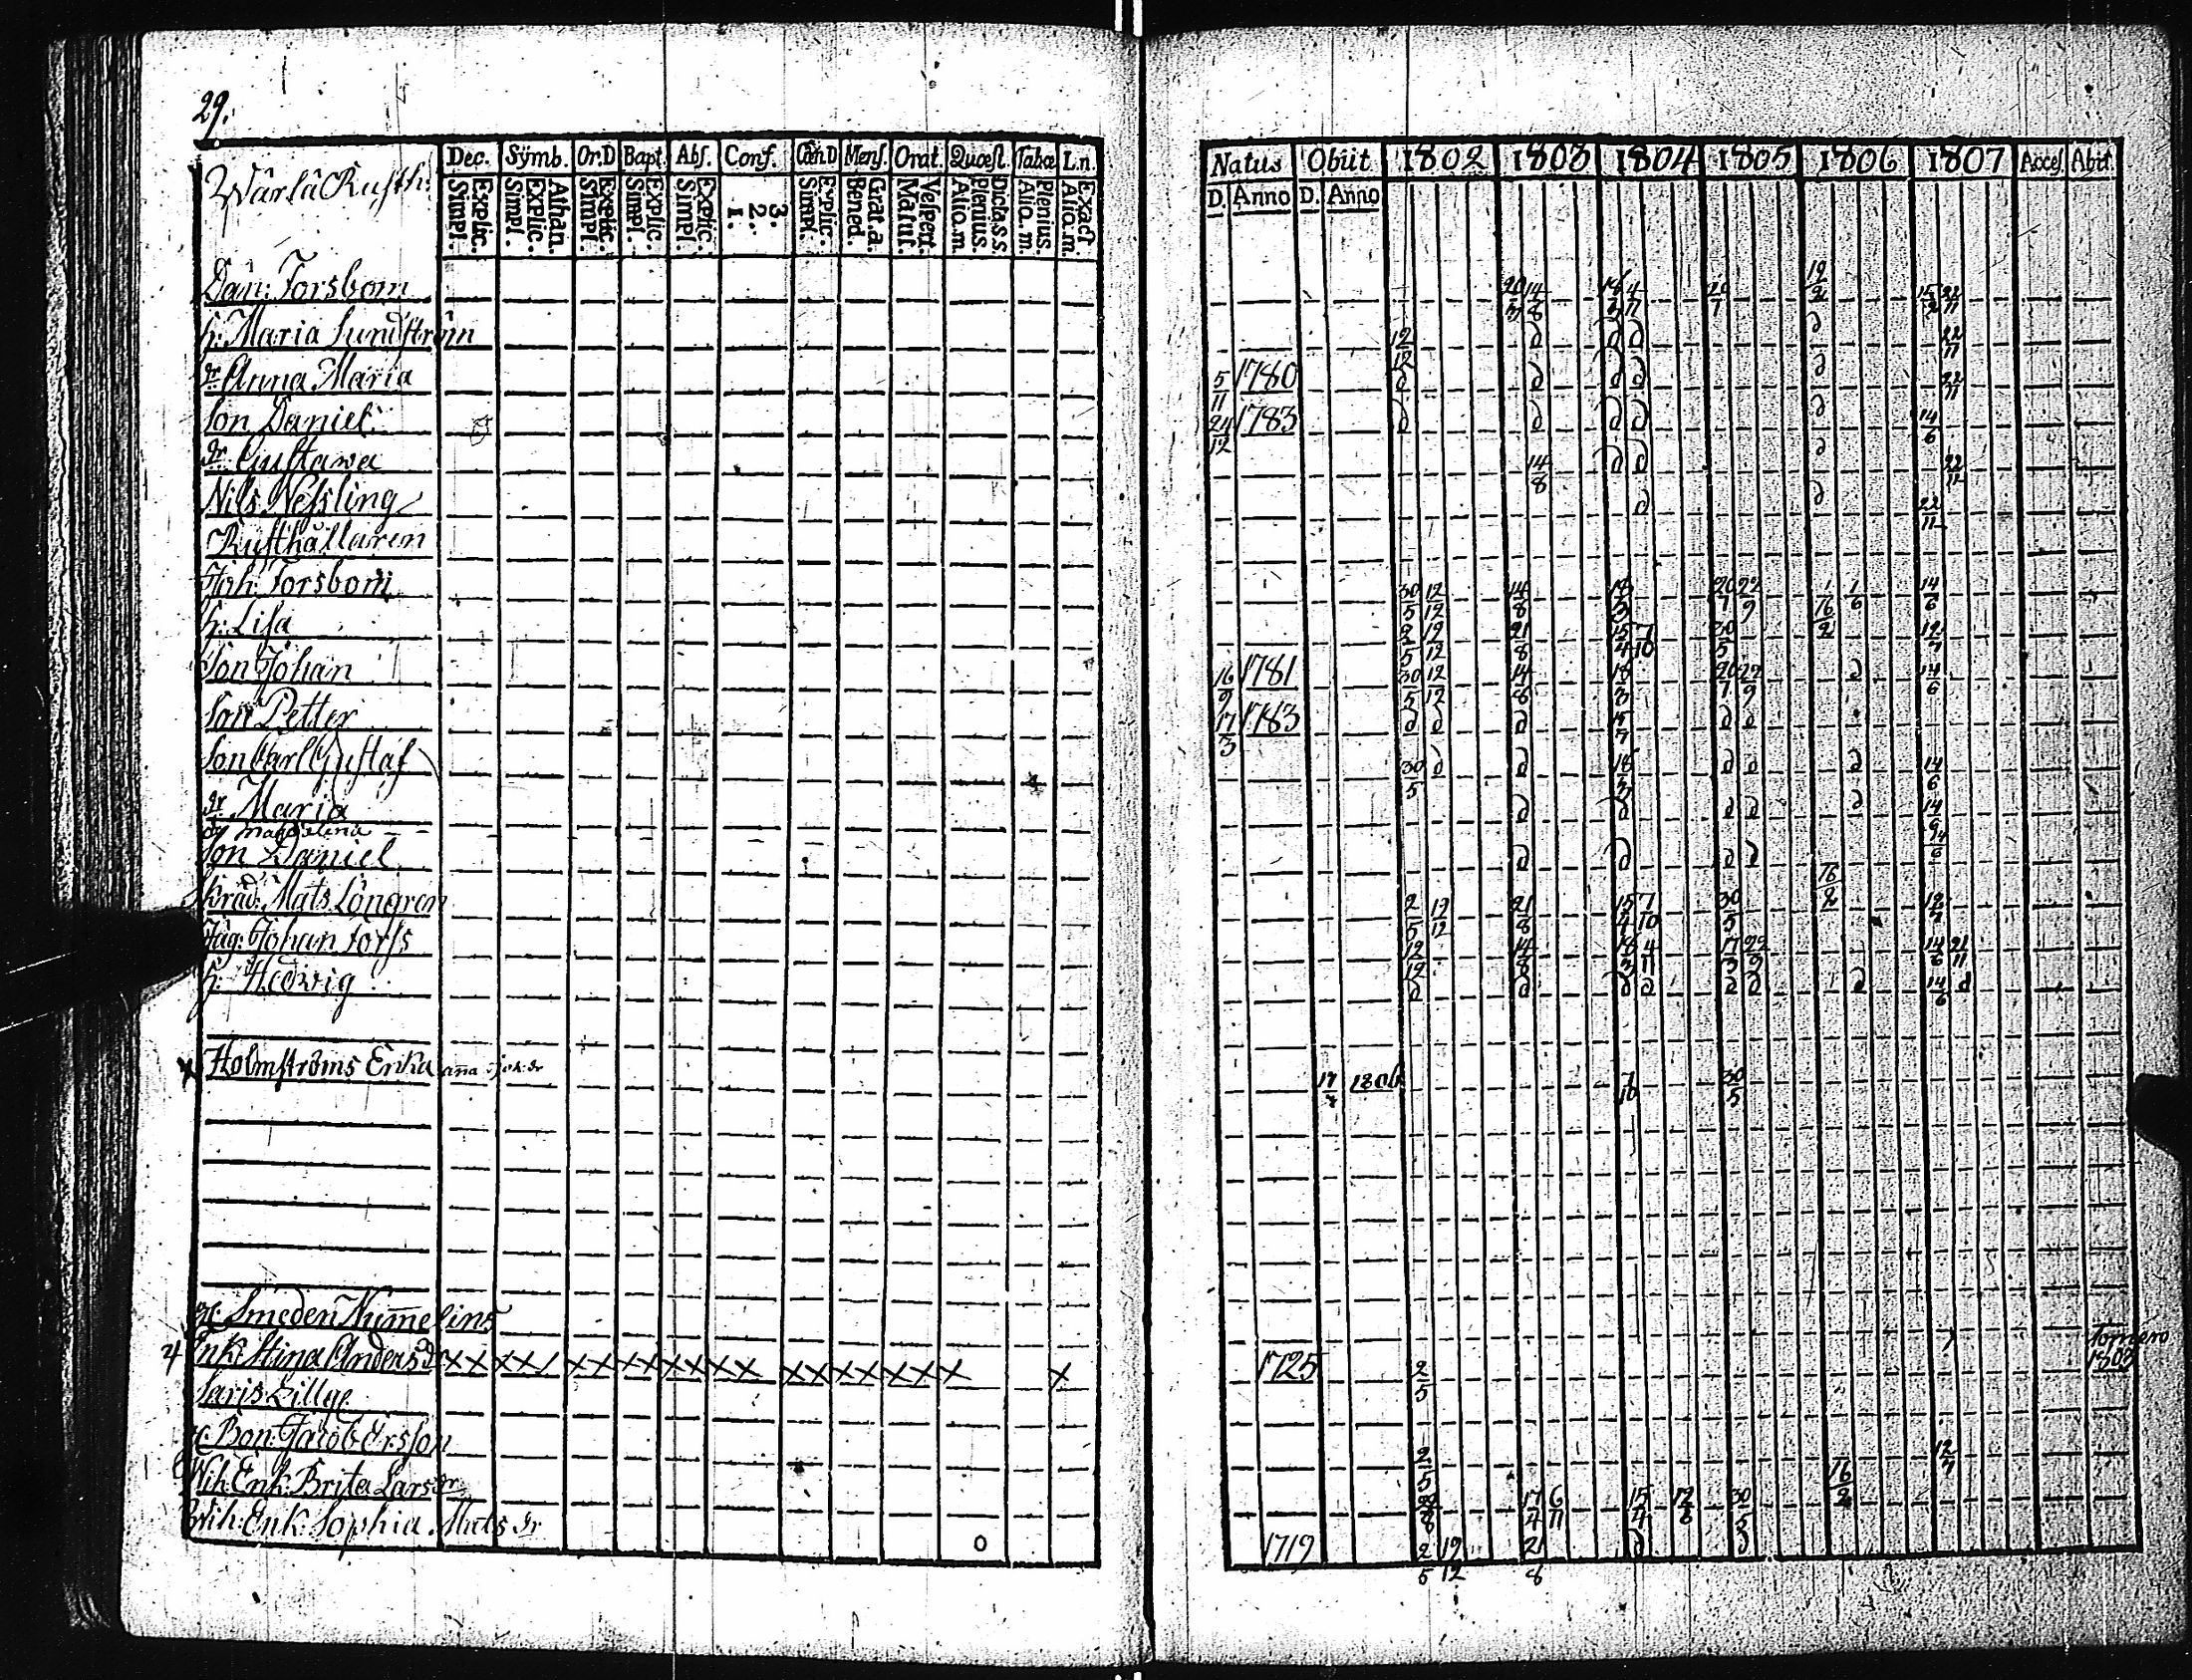 29.
Dec. Sÿmb. Or.D Bapt. Abs. Conf. Cœn D Mens. Orat. Quœst. Tabœ L.n.
Wärlä Rusth:
Explic. Simpl. Athan. Explic. Simpl. Explic. Simpl. Explic. Simpl. Explic. Simpl. 3. 2. 1. Explic. Simpl. Grat.a. Bened. Vespert. Matut. Dicta.s.s. Plenius. Alio.m. Plenius. Alio.m. Exact Alio.m.
Dan: Forsbom
h: Maria Lundström
dr Anna Maria
Son Daniel
dr Gustawa
Nils Nessling
Rusthållaren
Joh: Forsbom
h: Lisa
Son Johan
Son Petter
Son Carl Gustaf
dr Maria
dr Magdalena
Son Daniel
Skräd: Mats Löngren
Täg: Johan Forss
h: Hedvig
Holmströms Erika
Smeden Numelins
Enk: Stina Anders dr XX XX/ XX XX XX XX XX XX XXX X X
Saris Lillge
Bon: Jacob Ersson
Wih: Enk: Brita Lars dr
Wih: Enk: Sophia Mats dr 0
Natus Obiit 1802 1803 1804 1805 1806 1807 Acces. Abit
D. Anno D. Anno
20/3 14/8 18/3 4/11 19/2 15/2 22/11
12/12 22/11
5/11 1780 22/11
24/12 1783 14/6
14/8 22/11
22/11
30/5 12/12 14/8 18/3 20/1 22/9 1/6 14/6
2/5 19/12 21/8 15/4 7/10 30/5 16/2 12/7
16/9 1781 30/5 12/12 14/8 18/3 20/1 22/9 14/6
17/3 1783 15/7
30/5 18/3 14/6
14/6
16/2
2/5 19/12 21/8 15/4 7/10 30/5 12/7
12/12 14/8 18/3 4/11 17/3 22/9 14/6 21/11
14/6
17/7 1806 7/10 30/5
1725 2/5 1803
2/5 16/2 12/7
17/4 6/11 15/4 12/8 30/5
1719 2/5 19/12 21/8